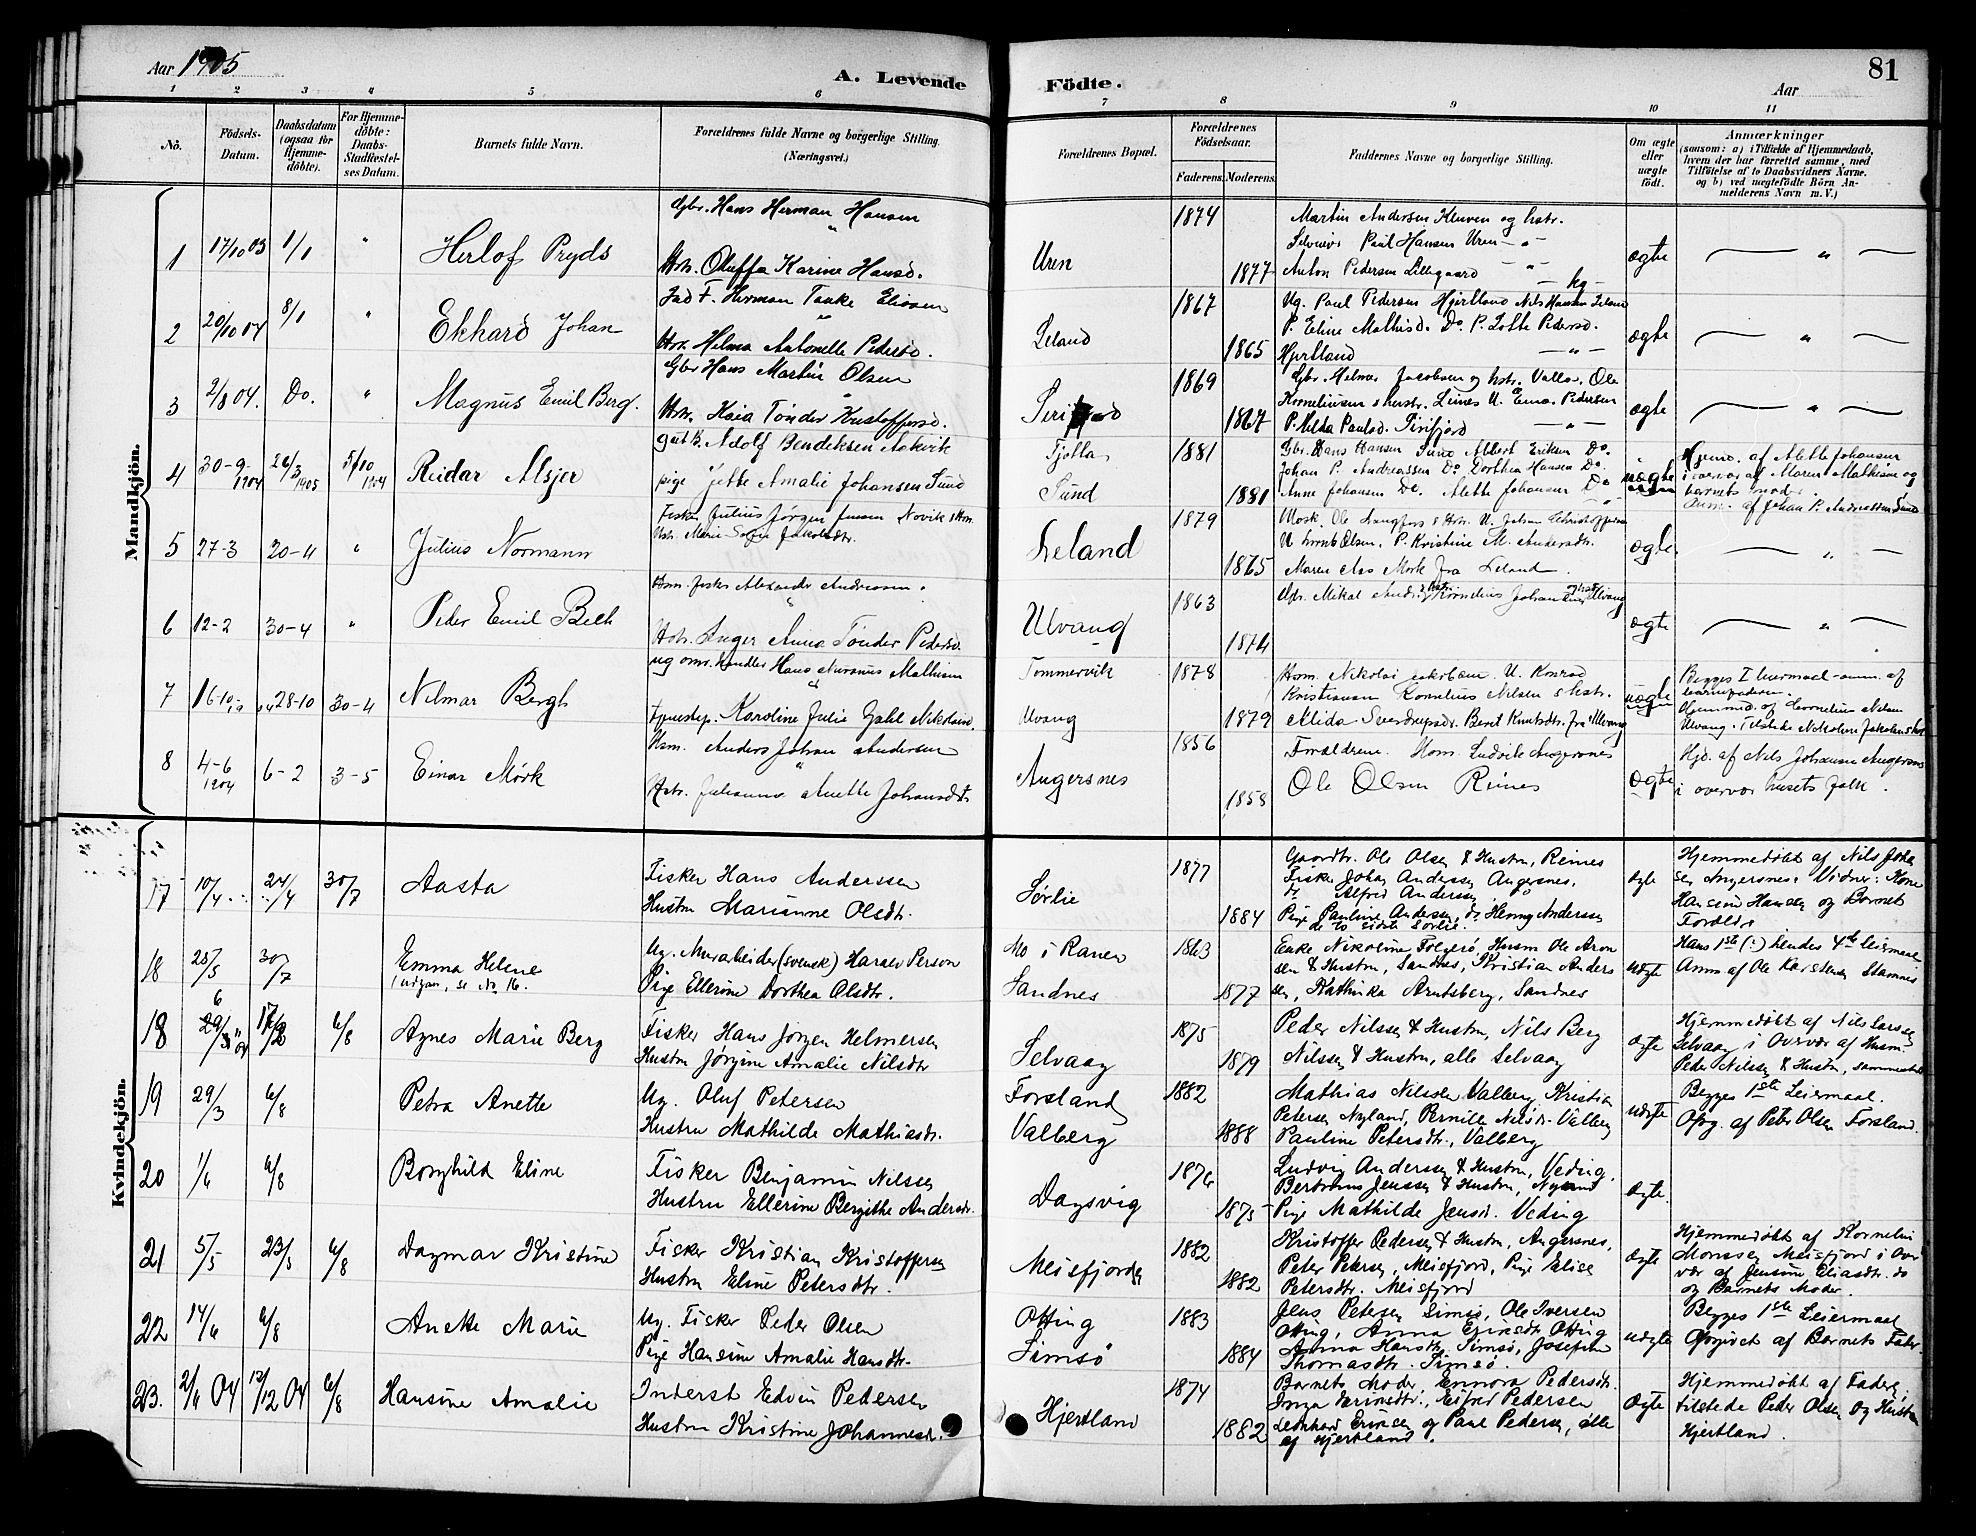 Aar 1905
A. Levende
Födte.
Aar
81
1 2 3 4 5 6 7 8 9 10 11
No.
Födsels-Datum.
Daabsdatum (ogsaa for Hjemme-döbte).
For Hjemme-döbte: Daabs-Stadfæstel-ses Datum.
Barnets fulde Navn.
Forældrenes fulde Navne og borgerlige Stilling. (Næringsvei.)
Forældrenes Bopæl.
Forældrenes Födselsaar.
Faderens. Moderens.
Faddernes Navne og borgerlige Stilling.
Om ægte eller uægte födt.
Anmærkninger
(saasom: a) i Tilfælde af Hjemmedaab,
hvem der har forrettet samme, med
Tilföielse af to Daabsvidners Navne.
og b) ved uægtefödte Börn An-
melderens Navn m. V.)
Mandkjön.
Gbr. Hans Herman Hansen
1 17/10 03 1/1 " Herlof Pryds
Hstr. Oluffa Karine Hansd.
Uren 1874 1877
Martin Andersen Kleiven og hstr.
Paul Hansen Uren
Anton Pedersen Lillegaard
ægte
Ind F. Herman Tanke Eliasen
2 20/10 04 8/1 " Ekhard Johan
Hstr. Helma Antonette Pedersd.
Leland 1867 1865
Ug. Paul Pedersen Hjertland Nils Hansen Leland
P. Eline Mathisd. Do. P. Lotte Pedersd.
Hjertland
ægte
Gbr Hans Martin Olsen
3 2/8 04. Do. " Magnus Emil Berg.
Hstr. Kaia Tönder Kristoffersd.
1869 1867
Gbr. Helmer Jacobsen og hstr. Valla. Ole
Korneliusen & hustr. Lines U. Enoc. Pedersen
P. Alida Paulsd. Sirifjord
ægte
4 30-9-1904 26/3 1905 5/10 1904 Reidar Alsjer
Adolf Bendiksen Aakvik
pige Jette Amalie Johansen Sund
Tjotta
Sund
1881 1881
Gbr. Hans Hansen Sund Albert Eriksen Do.
Johan P. Andreassen Do. Dorthea Hansen Do.
Anne Johansen Do. Alette Johansen Do
uægte
Hjemd. af Alette Johansen
i overvær af Maren Mathisen og
barnets moder.
Anm. af Johan P. Andreassen Sund
5 27-3 20-4 " Julius Normann
Fisker Julius Jörgen Jensen Novik & Hsm.
Hstr. Marie Sofie Jakobsdtr.
Leland 1879 1865
P. Kristine M. Andersdtr.
Maren Mork fra Leland.
ægte
6 12-2 30-4 " Peder Emil Bech
Hsm. fisker Alexander Andreasen.
Hstr. Inger Anna Tönder Pedersd.
Ulvang 1863 1874
ægte
7 16-10 28-10 30-4 Nilmar Bergh
ug omr. handler Hans Mathisen
tjenestep. Karoline Julie Nikolaisd.
Tommervik
Ulvang
1878 1879
Hsm. Nikolai Jakobsen. U. Konrad
Kristiansen Kornelius Nilsen & hstr.
Alida Sverdrupsdr. Berit Knutsdtr. fra Ulvang
uægte
Begges I leiermaal - anm. af
barnefaderen.
Hjemmed. af Cornelius Nilsen
Ulvang. Tilstede Nikolai Jakobsens hstr
8 4-6 1904 6-2 3-5 Einar Mörk
Hsm. Anders Johan Andersen
Hstr. Julianna Anette Johansdtr
Angersnes 1856 1858
Forældrene. Hsm. Ludvik Angersnes
Ole Olsen Reines
ægte
Hjd. af Nils Johansen Angersnes
i overvær husets folk.
Kvindekjön.
17 10/4 24/4 30/7 Aasta
Fisker Hans Anderssen
Hustru Marianne Olsdtr.
Sörlie 1877 1884
Gaardbr. Ole Olsen & Hustru, Reines
Fisker Johan Anderssen Angersnes,
do Alfred Anderssen
Pige Pauline Anderssen, do Henny Anderssen
de to sidste Sörlie.
ægte
Hjemmedöbt af Nils Johan
sen Angersnes. Vidner: Kone
Hansine Hansen og Barnets
Forældre
18 25/5 30/7 Emma Helene
(udgaar, se No 16.
Ug. Murarbeider (svensk) Harald Person
Pige Ellerine Dorthea Olsdtr.
Mo i Ranen
Sandnes
1863 1877
Enke Nikoline Fölgerö, Husm Ole Aron
sen & Hustru, Sandnes, Kristian Anders
sen, Kathinka Arntsberg, Sandnes
uægte
Hans 1ste (:) hendes 4de Leiermaal
Anm af Ole Karstensen Stamnes
18 29/3 04 6/8 Agnes Marie Berg
Fisker Hans Jörgen Helmersen
Hustru Jörgine Amalie Nilsdtr
Selvaag 1875 1879
Peder Nilssen & Hustru, Nils Berg
Nilssen & Hustru, alle Selvaag
ægte
Hjemmedöbt af Nils Larssen
Selvaag i Overvær af Husm.
Peder Nilssen & Hustru, sammesteds
19 29/3 6/8 Petra Anette
Ug. Oluf Petersen
Hustru Mathilde Mathiasdr.
Forsland
Valberg
1882 1888
Mathias Nilssen Valberg, Kristian
Petersen Nyland, Pernille Nilsd. Valberg
Pauline Petersdtr., Valberg
uægte
Begges 1ste Leiermaal.
Opg. af Peter Olsen Forsland.
20 1/6 6/8 Borghild Eline
Fisker Benjamin Nilssen
Hustru Ellerine Bergithe Andersdr.
Dagsvig 1876 1875
Ludvig Anderssen & Hustru, Veding,
Bertmus Jenssen & Hustru, Nyland
Pige Mathilde Jensd. Veding
ægte.
21 5/5 23/5 6/8 Dagmar Kristine
Fisker Kristian Kristoffersen
Hustru Eline Petersdtr.
Meisfjorden 1882 1882
Kristoffer Pedersen & Hustru, Angersnes,
Peter Petersen, Meisfjord, Pige Elise
Petersdtr. Meisfjord
ægte
Hjemmedöbt af Kornelius
Monssen Meisfjord i Over
vær af Jensine Eliasdtr. do
og Barnets Moder.
22 14/6 6/8 Anette Marie
Ug. Fisker Peder Olsen
Pige Hansine Amalie Hansdtr.
Otting
Simsö
1883 1884
Jens Petersen Simsö, Ole Iversen
Otting, Anna Eriksdtr. Otting
Anna Hansdtr. Simsö, Josefine
Thomasdtr. Simsö.
uægte
Begges 1ste Leiermaal
Opgivet af Barnets Fader.
23. 2/6 04 12/12 04 6/8 Hansine Amalie
Inderst Edvin Pedersen
Hustru Kristine Johannesd.
Hjertland 1874 1882
Barnets Moder, Ennora Pedersdtr.
Inga Eriksdtr., Elfred Pedersen
Leonhard Eriksen og Paul Pedersen, alle
af Hjertland.
ægte
Hjemmedöbt af Faderen,
tilstede Peder Olsen og Hustru
Hjertland.